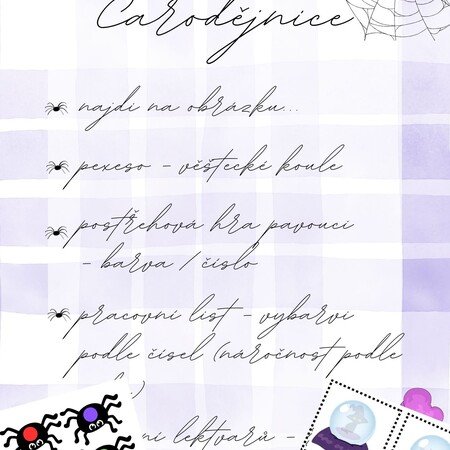 Čarodějnice
najdi na obrázku...
pexeso - věštecké koule
postřehová hra pavouci
- barva / číslo
pracovní list - vybarvi
podle čísel (náročnost podle
)
lektvarů -